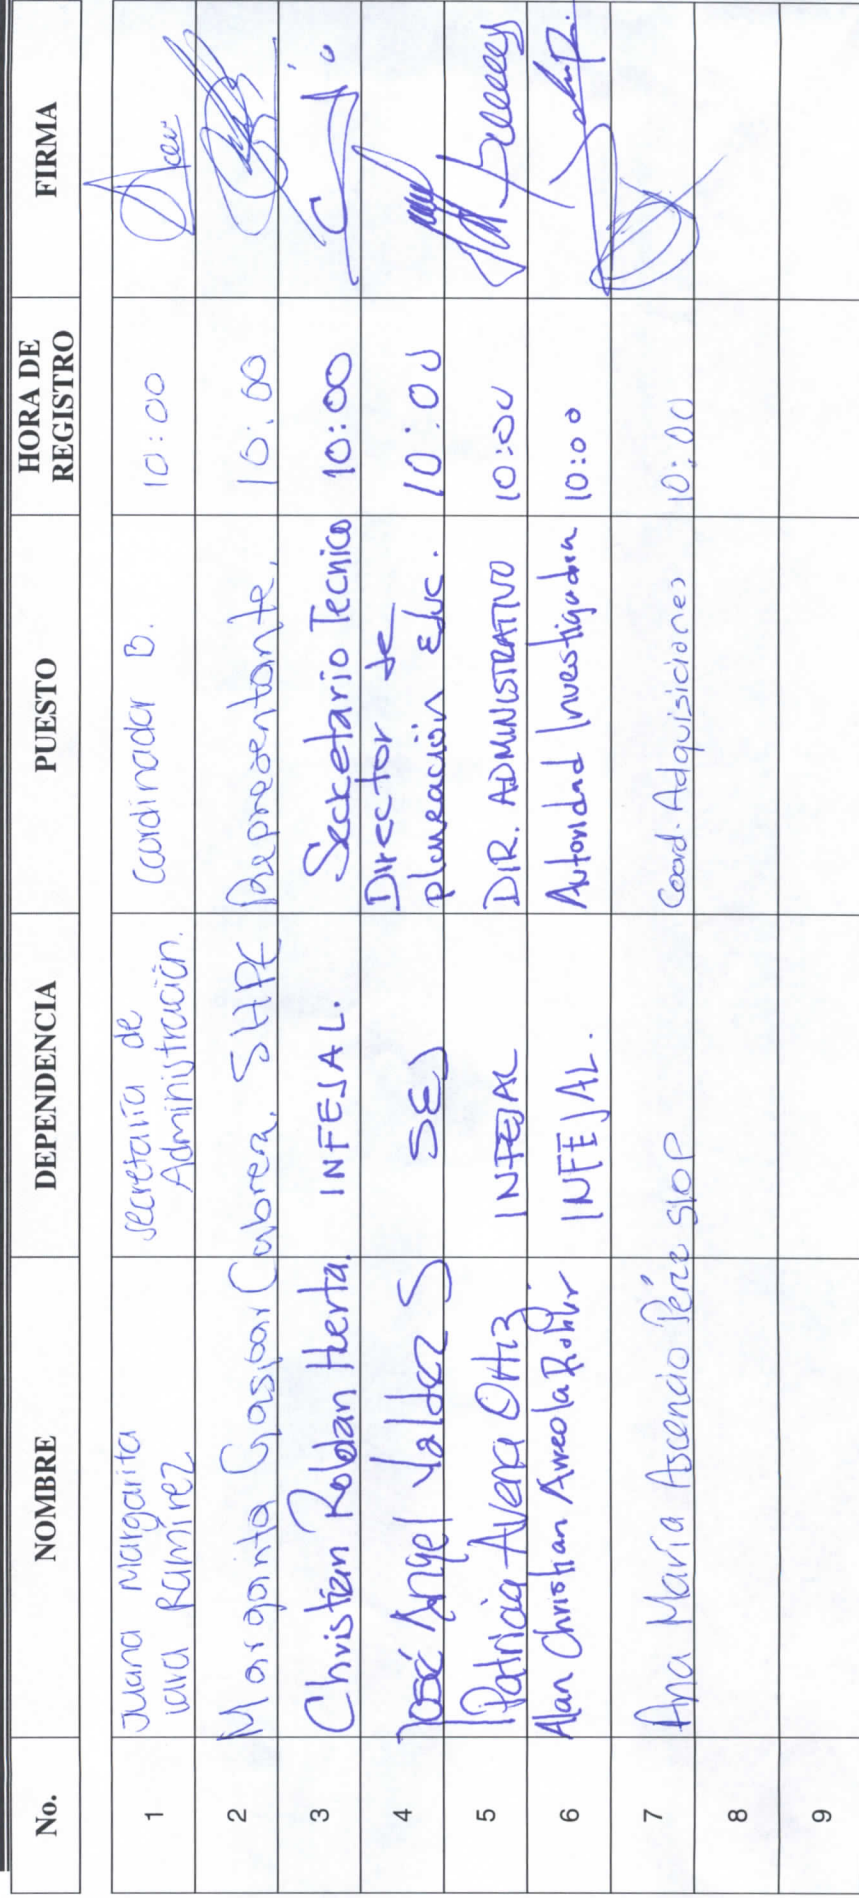 No. NOMBRE DEPENDENCIA PUESTO HORA DE REGISTRO FIRMA
1 Juana Margarita Jara Ramírez Secretaría de Administración. Coordinador B. 10:00
2 Margarita Gaspar Cabrera. SHPE Representante. 10:00
3 Christian Roldan Huerta. INFEJAL. Secretario Tecnico 10:00
4 José Angel Valdez S SEJ Director de planeación Educ. 10:00
5 Patricia Avena Ortiz INFEJAL DIR. ADMINISTRATIVO 10:00
6 Alan Christian INFEJAL. Autoridad Investigadora 10:00
7 Ana María Ascencio Pérez SIOP Coord. Adquisiciones 10:00
8
9